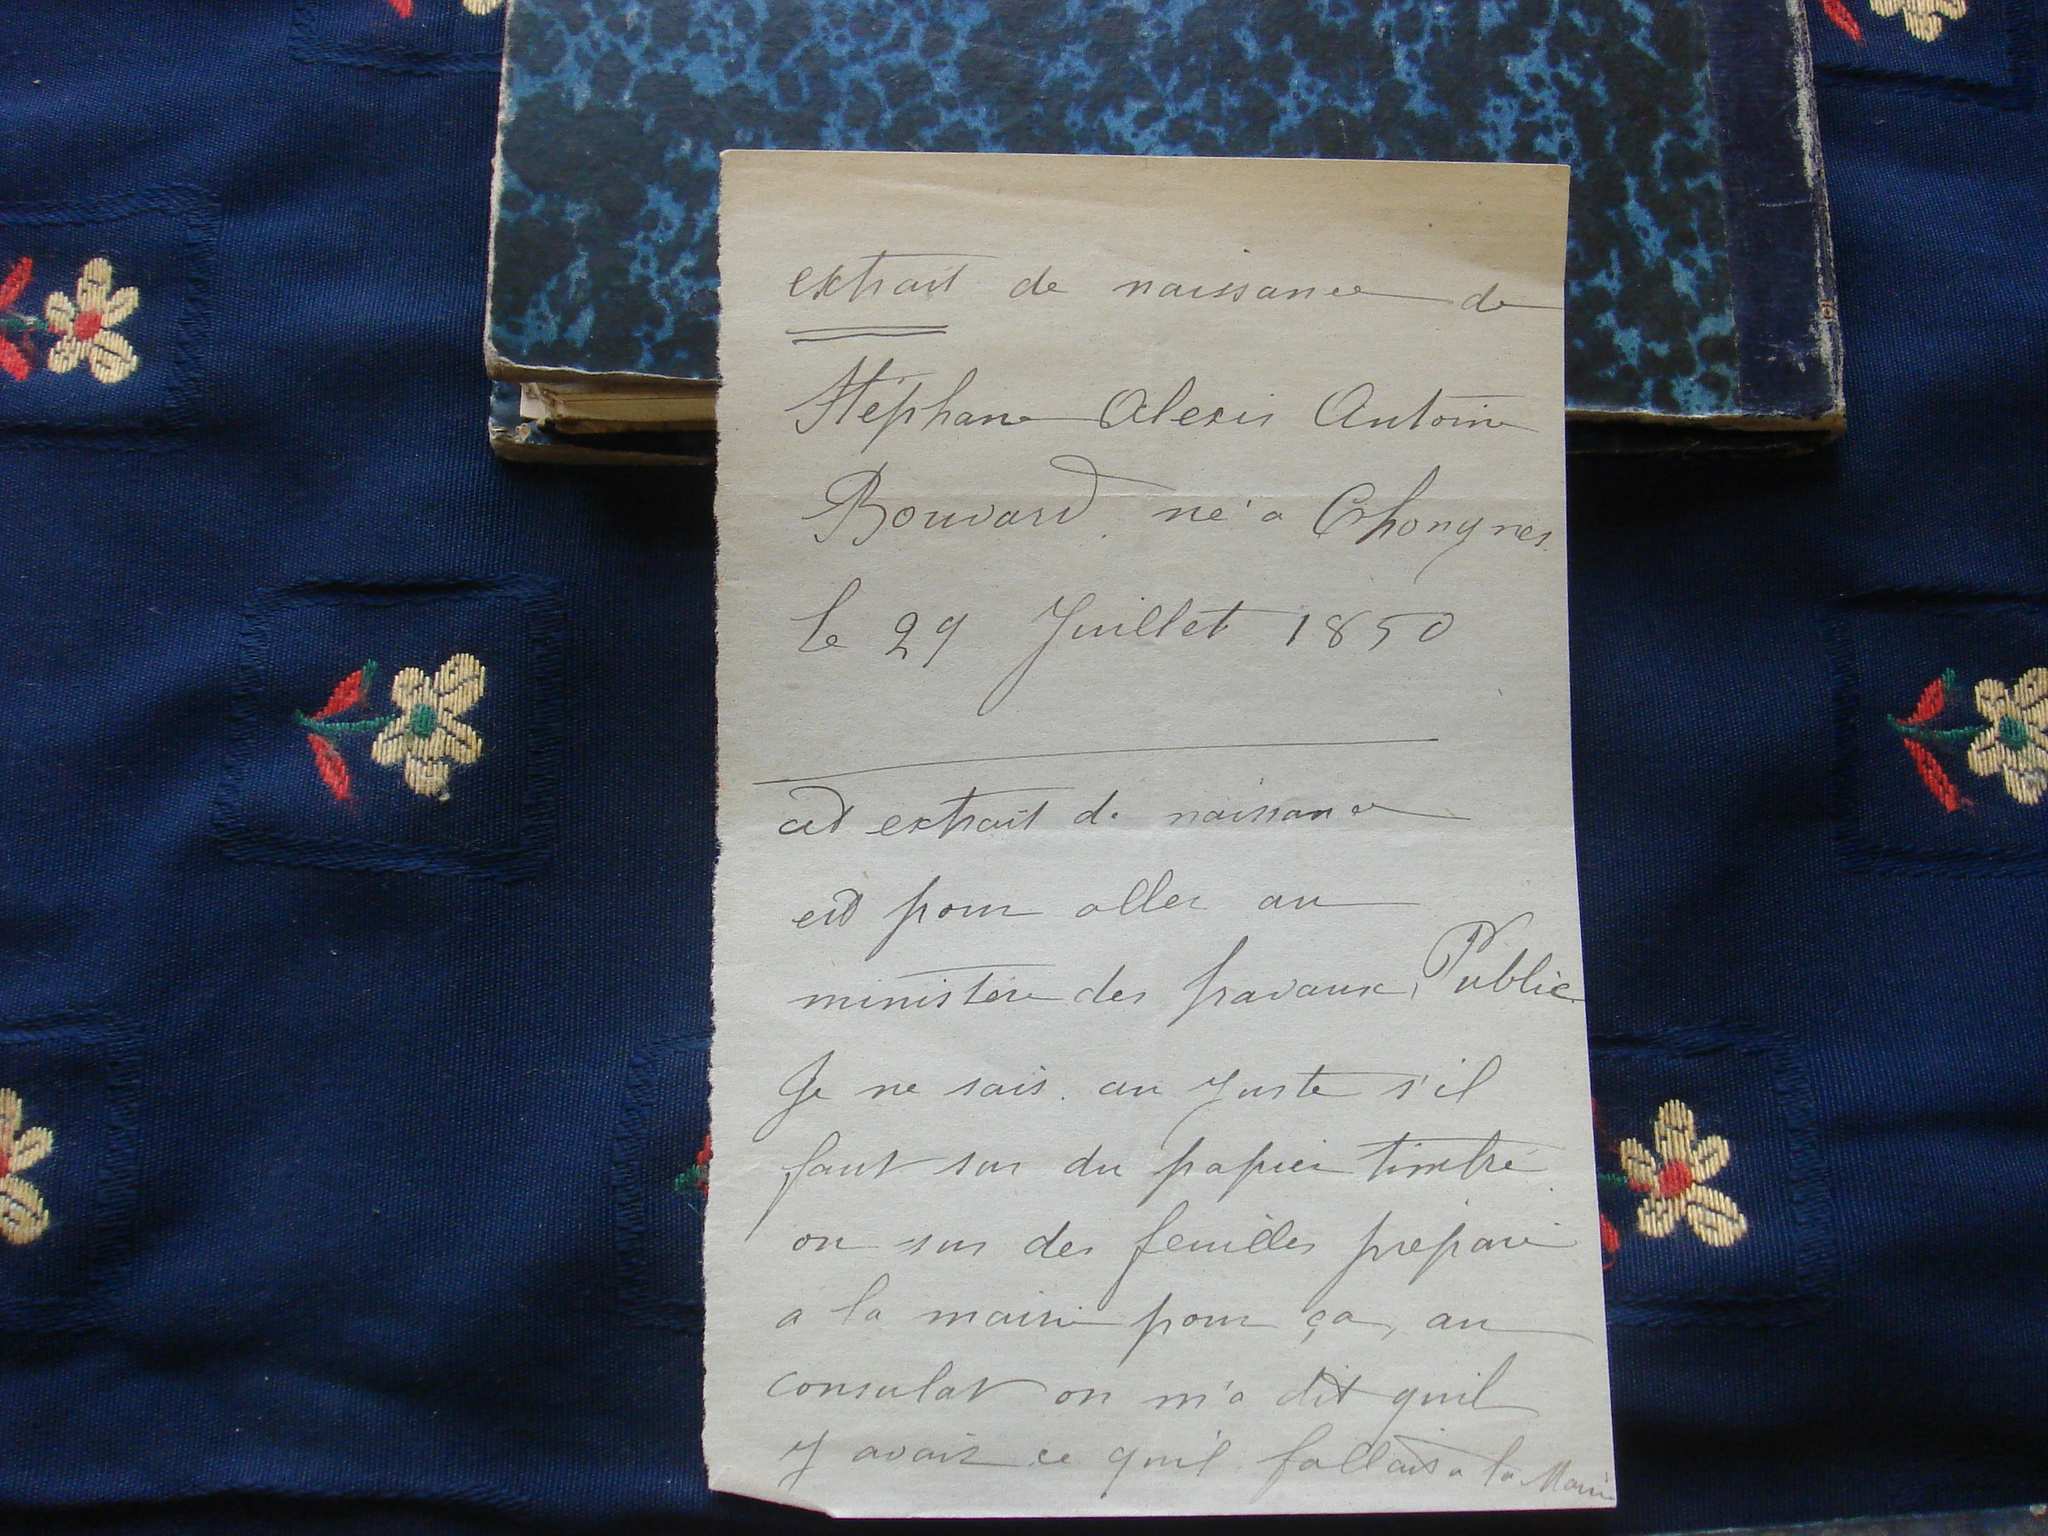 extrait de naissance de
Stéphane Alexis Antoine
Bouvard né a Chongnes
le 29 Juillet 1850
cet extrait de naissance
est pour aller au
ministère des travaux Public
Je ne sais au juste s'il
faut sur du papier timbré
ou sur des feuilles préparé
a la mairie pour ça, au
consulat on m'a dit qu'il
y avait ce qu'il fallait a la Mairie